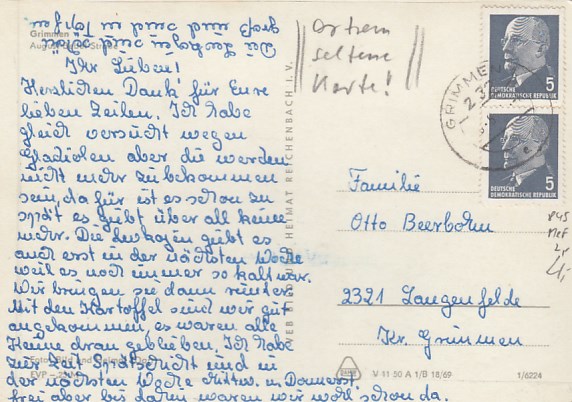 Grimmen
August-Bebel-Straße
Ihr Lieben!
Herzlichen Dank für Eure
lieben Zeilen. Ich habe
gleich versucht wegen
Gladiolen aber die werden
nicht mehr zu bekommen
sein, da für ist es schon zu
spät es gibt über all keine
mehr. Die Levkojen gibt es
auch erst in der nächsten Woche
weil es noch immer so kalt war.
Wir bringen sie dann runter
Mit den Kartoffel sind wir gut
angekommen, es waren alle
Keime dran geblieben. Ich habe
zur Zeit Spätschicht und in
der nächsten Woche Mittw. u. Donnerst.
frei aber bis dahin waren wir wohl schon da.
Die und sind im
und sind in
Foto: Bild und Heimat
EVP
VEB BILD UND HEIMAT REICHENBACH I. V.
extrem
seltene
Karte!
GRIMMEN
5
DEUTSCHE
DEMOKRATISCHE REPUBLIK
5
DEUTSCHE
DEMOKRATISCHE REPUBLIK
Familie
Otto Beerbohm
2321 Langenfelde
Kr. Grimmen
845
MeF
4,-
V 11 50 A 1/B 18/69
1/6224